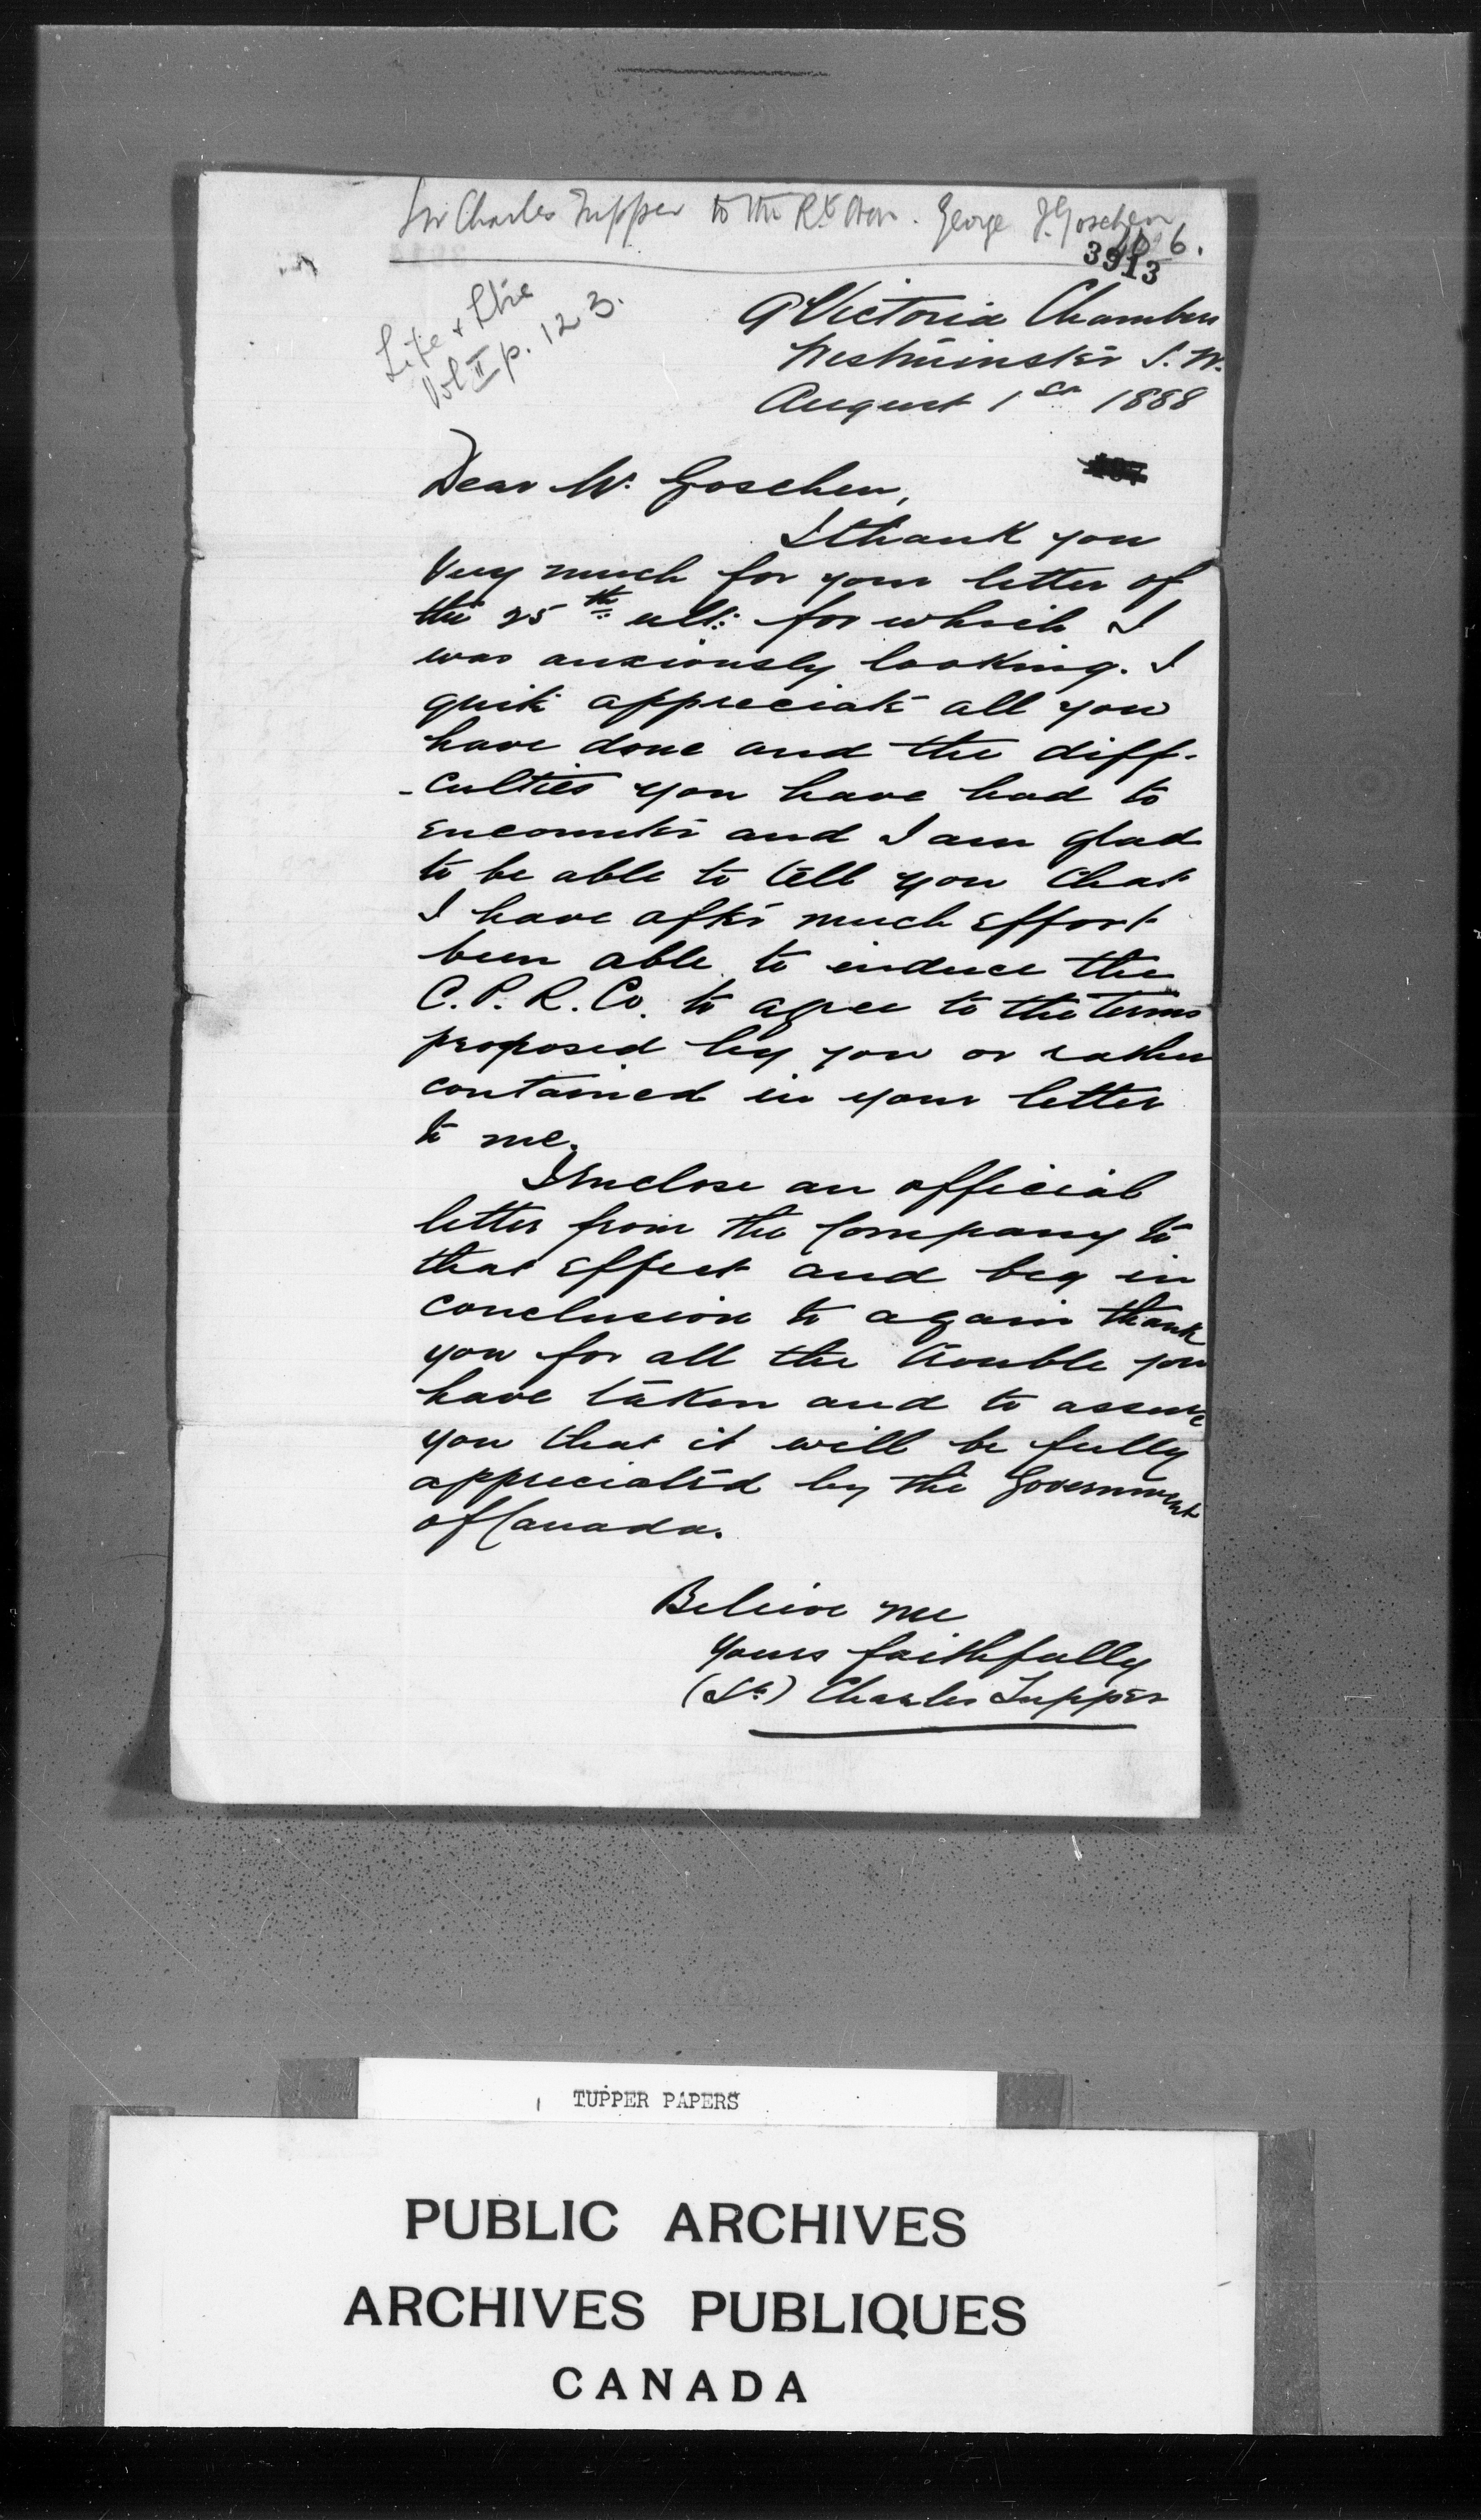 Sir Charles Tupper to the Rt Hon. George J. Goschen
6.
3913
Life &
Vol II p. 123.
9 Victoria Chambers
Westminster S.W.
August 1st 1888
Dear Mr. Goschen,
I thank you
very much for your letter of
the 25th ult: for which I
was anxiously looking. I
quite appreciate all you
have done and the diff-
-culties you have had to
encounter and I am glad
to be able to tell you that
I have after much effort
been able to induce the
C.P.R. Co. to agree to the terms
proposed by you or rather
contained in your letter
to me.
I enclose an official
letter from the Company to
that effect and beg in
conclusion to again thank
you for all the trouble you
have taken and to assure
you that it will be fully
appreciated by the Government
of Canada.
Believe me
Yours faithfully
Charles Tupper
TUPPER PAPERS
PUBLIC ARCHIVES
ARCHIVES PUBLIQUES
CANADA